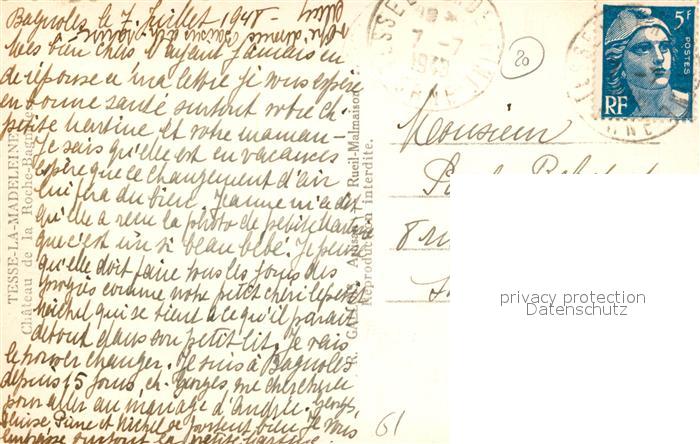 Bagnoles le 7 Juillet 1948 -
Mes bien chers N'ayant Jamais eu
de réponse a ma lettre je vous espère
en bonne santé surtout votre ch.
petite Martine et votre maman -
Je sais qu'elle est en vacances
espère que ce changement d'air
lui fra du bien. Jeanne m'a dit
qu'elle a reçu la photo de petite Martine
que c'est un si beau bébé. Je pense
qu'elle doit faire tous les jours des
progrès comme notre petit chéri le petit
Michel qui se tient a ce qu'il parait
debout dans son petit lit. Je vais
le trouver changer. Je suis à Bagnoles
depuis 15 jours, ch. Georges, me cherche
pour aller au mariage d'Andrée. Georges,
Pierre et Michel se portent bien Je vous
embrasse surtout la petite Martine
TESSE-LA-MADELEINE
Château de la Roche-Bagnoles
Rueil-Malmaison
Reproduction interdite.
7 - 7
1948
20
5F
POSTES
RF
Monsieur
8 rue
61
privacy protection
Datenschutz